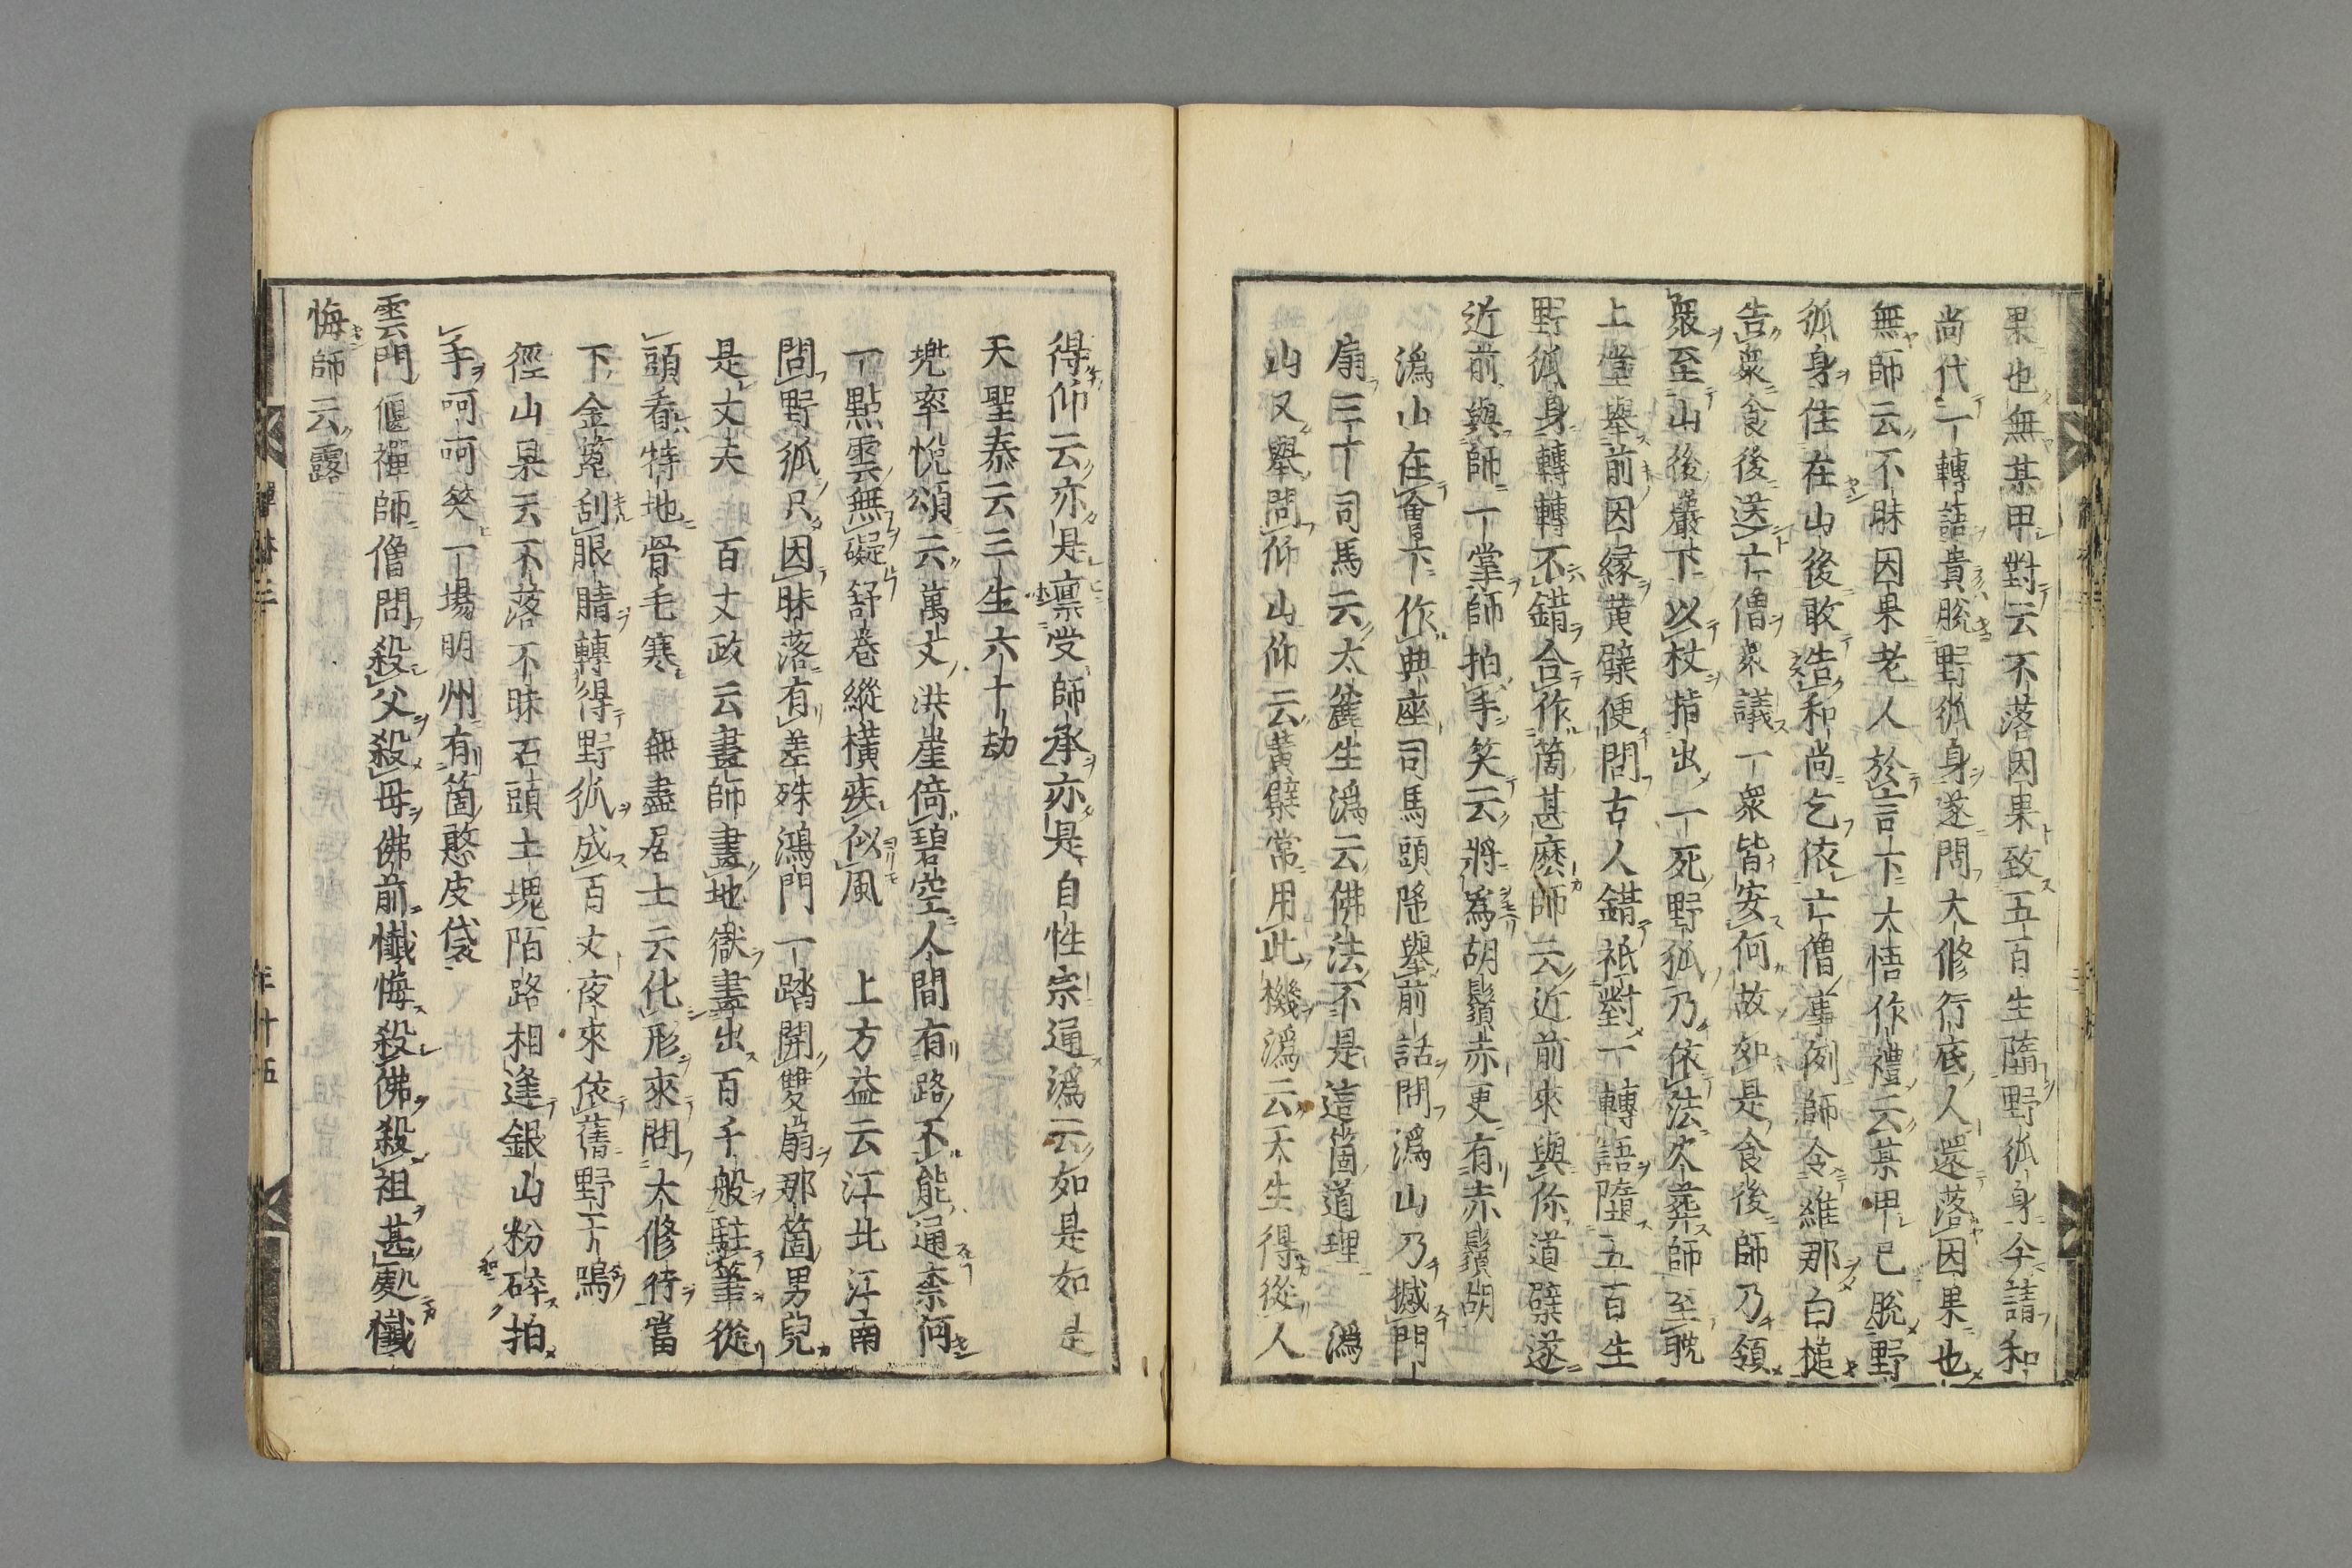 果也無某甲對云不落因果致五百生墮野狐身今請和
尚代一轉語貴脫野狐身遂問大修行底人還落因果也
無師云不昧因果老人於言下大悟作禮云某甲已脫野
狐身住在山後敢造和尚乞依亡僧事例師令維那白槌
告衆食後送亡僧衆議一衆皆安何故如是食後師乃領
衆至山後巖下以杖指出一死野狐乃依法火葬師至晚
上堂舉前因緣黃檗便問古人錯祇對一轉語墮五百生
野狐身轉轉不錯合作箇甚麽師云近前來與你道檗遂
近前與師一掌師拍手笑云將爲胡鬚赤更有赤鬚胡
溈山在會下作典座司馬頭陀舉前話問溈山乃撼門
扇三十司馬云太麄生溈云佛法不是這箇道理　溈
山又舉問仰山仰云黃檗常用此機溈云天生得從人
得仰云亦是稟受師承亦是自性宗通溈云如是如是
天聖泰云三生六十劫
兠率悅頌云萬丈洪崖倚碧空人間有路不能通柰何
一點雲無礙舒卷縱橫疾似風　上方益云江北江南
問野狐只因昧落有差殊鴻門一踏開雙扇那箇男兒
是丈夫　百丈政云畫師畫地獄畫出百千般駐筆從
頭看特地骨毛寒　無盡居士云化形來問大修行當
下金篦刮眼睛轉得野狐成百丈夜來依舊野干鳴
徑山杲云不落不昧石頭土塊陌路相逢銀山粉碎拍
手呵呵笑一場明州有箇憨皮袋
雲門偃禪師僧問殺父殺母佛前懺悔殺佛殺祖甚處懺
悔師云露